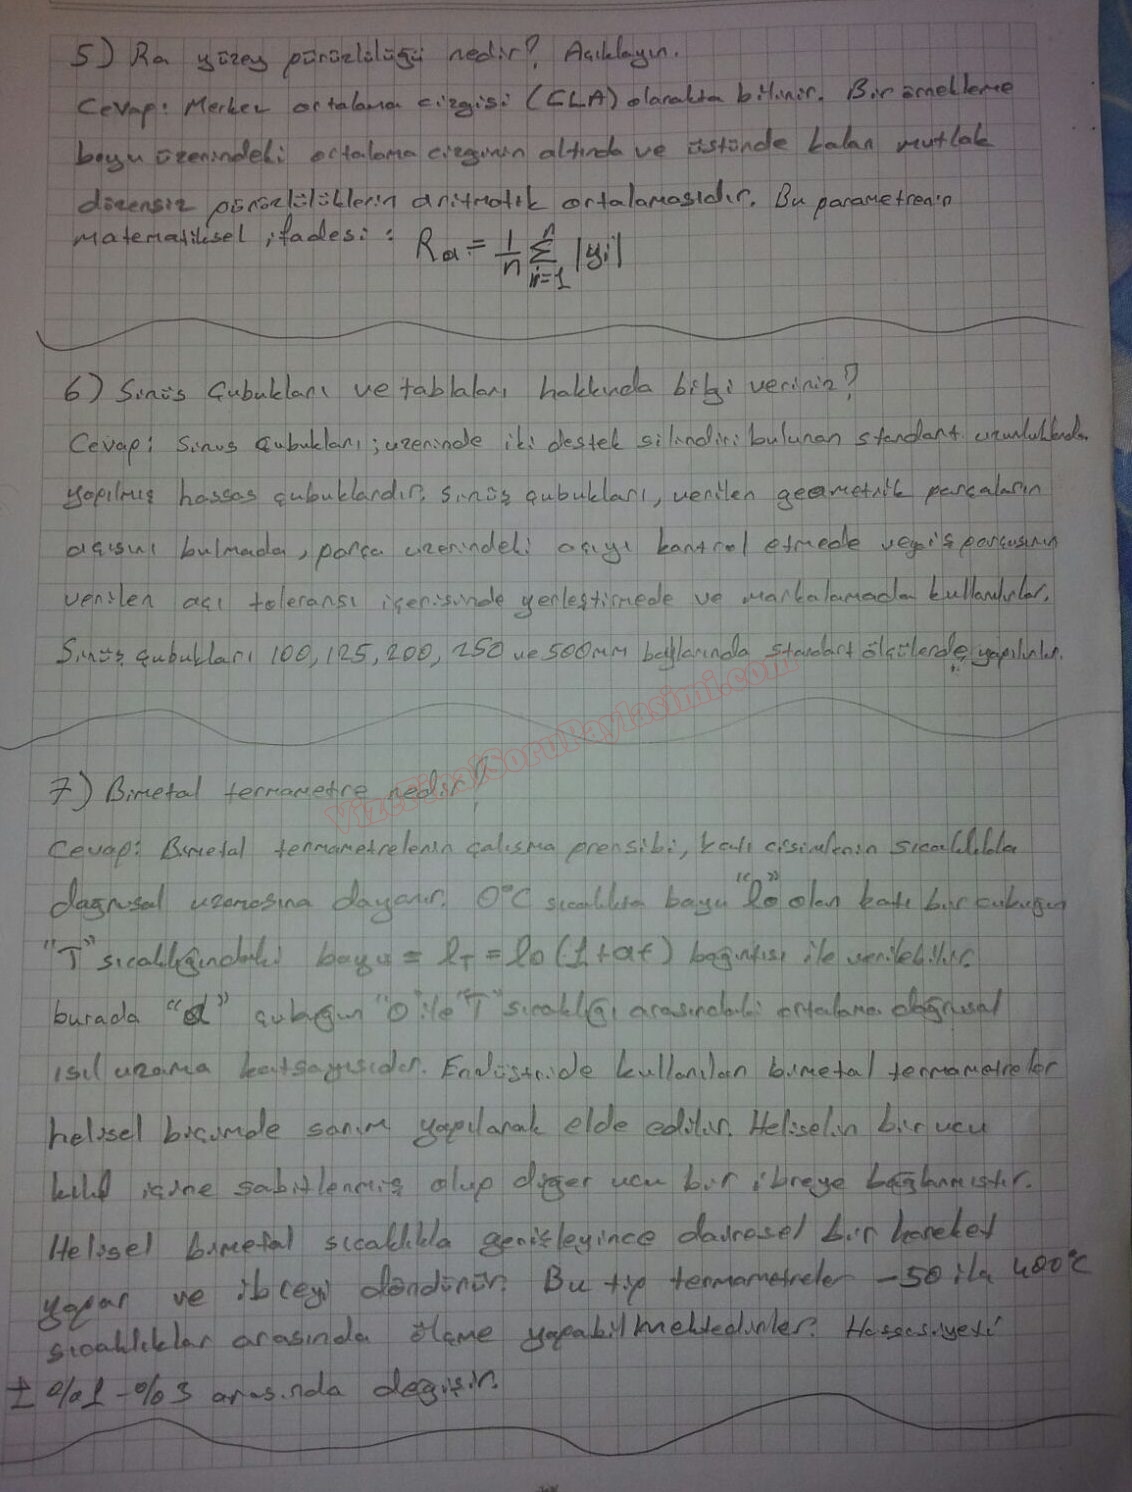 5) Ra yüzey pürüzlülüğü nedir? Açıklayın.
Cevap: Merkez ortalama çizgisi (CLA) olarakta bilinir. Bir örnekleme
boyu üzerindeki ortalama çizginin altında ve üstünde kalan mutlak
düzensiz pürüzlülüklerin aritmatik ortalamasıdır. Bu parametrenin
matematiksel ifadesi: Ra = 1/n Σ n i=1 |yi|
6) Sinüs Çubukları ve tablaları hakkında bilgi veriniz?
Cevap: Sinus çubukları; üzerinde iki destek silindiri bulunan standart uzunluklarda
yapılmış hassas çubuklardır. Sinüs çubukları, verilen geometrik parçaların
açısını bulmada, parça üzerindeki açıyı kontrol etmede veya iş parçasının
verilen açı toleransı içerisinde yerleştirmede ve markalamada kullanılırlar.
Sinüs çubukları 100, 125, 200, 250 ve 500mm boylarında standart ölçülerde yapılırlar.
VizeFinalSoruPaylasimi.com
7) Bimetal termometre nedir?
Cevap: Bimetal termometrelerin çalışma prensibi, katı cisimlerin sıcaklıkla
doğrusal uzamasına dayanır. 0°C sıcaklıkta boyu "l0" olan katı bir çubuğun
"T" sıcaklığındaki boyu = lT = l0 (1+at) bağıntısı ile verilebilir.
burada "α" çubuğun "0" ile "T" sıcaklığı arasındaki ortalama doğrusal
ısıl uzama katsayısıdır. Endüstride kullanılan bimetal termometreler
helisel biçimde sarım yapılarak elde edilir. Heliselin bir ucu
kılıf içine sabitlenmiş olup diğer ucu bir ibreye bağlanmıştır.
Helisel bimetal sıcaklıkla genişleyince dairesel bir hareket
yapar ve ibreyi döndürür. Bu tip termometreler -50 ila 400°C
sıcaklıklar arasında ölçme yapabilmektedirler. Hassasiyeti
± %1 - %3 arasında değişir.